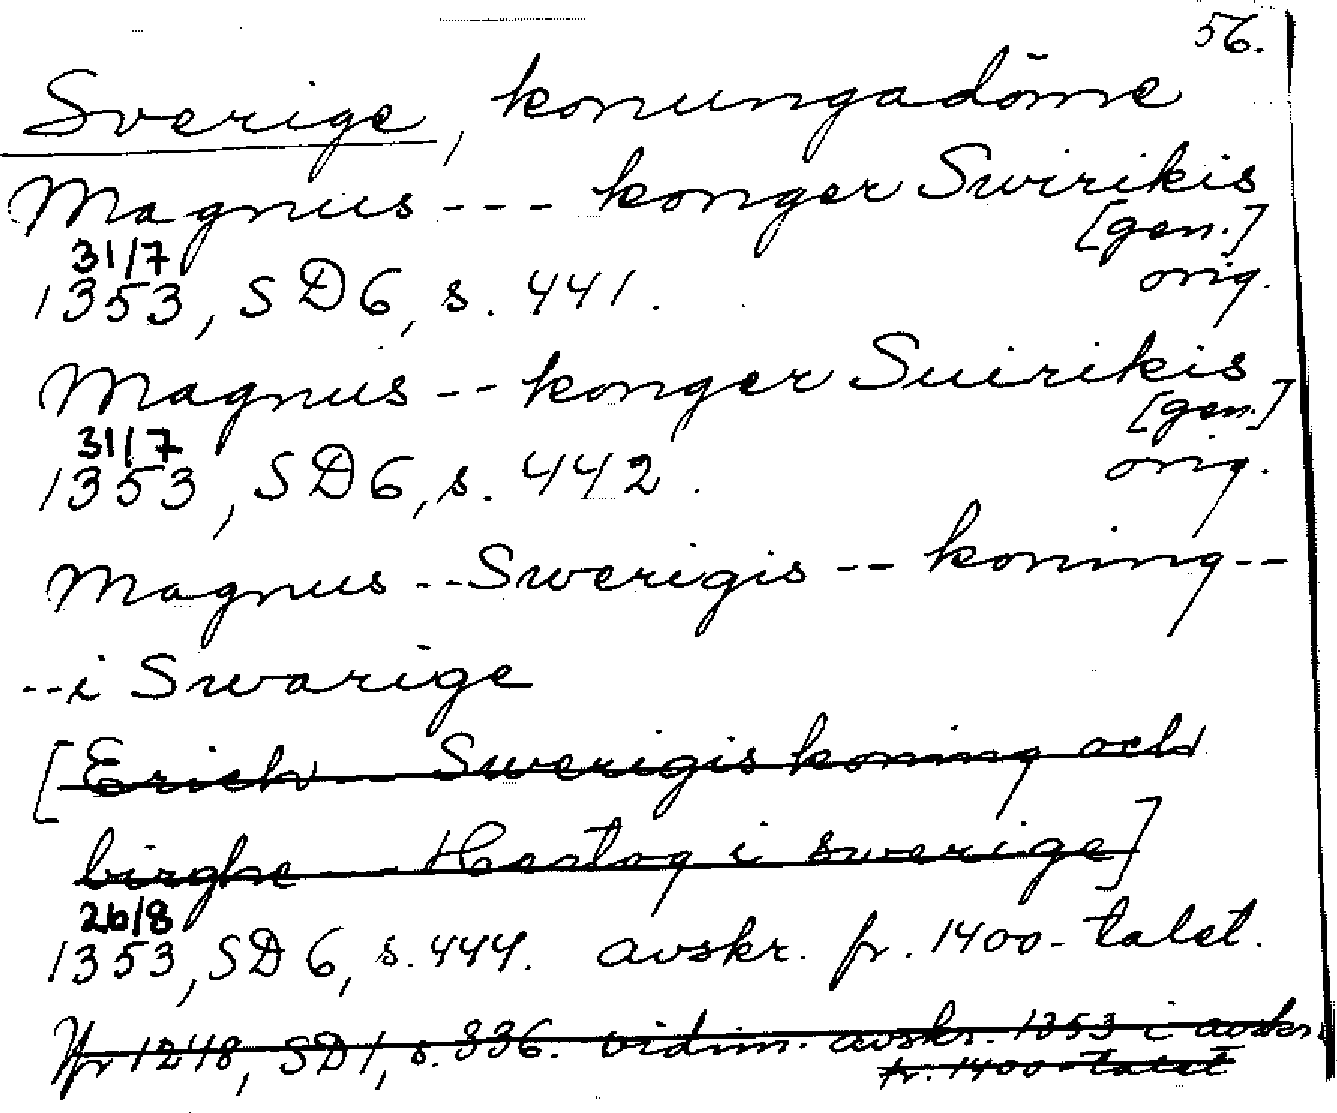 56.
Sverige, konungadöme
Magnus --- konger Swirikis
[gen.]
31/7
1353, SD6, s. 441. orig.
Magnus -- konger Suirikis
[gen.]
31/7
1353, SD6, s. 442. orig.
Magnus -- Swerigis -- koning --
-- i Swarige
[Erich -- Swerigis koning och
birghe --- Hertog i swerige]
26/8
1353, SD 6, s. 444. avskr. fr. 1400-talet.
Jfr 1248, SD1, s. 336. vidim. avskr. 1353 i avskr.
fr. 1400-talet